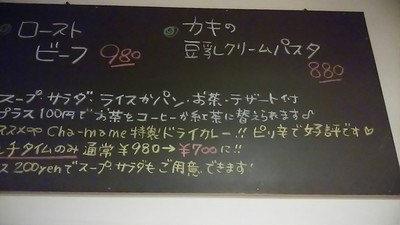 ロースト
ビーフ 980
カキの
豆乳クリームパスタ
880
スープ・サラダ・ライスかパン・お茶・デザート付
プラス100円でお茶をコーヒーか紅茶に替えられます♪
ススメ∞ Cha-mame特製ドライカレー!! ピリ辛で好評です♡
ンチタイムのみ 通常¥980→¥700に!!
ス200yenでスープ、サラダもご用意できます!